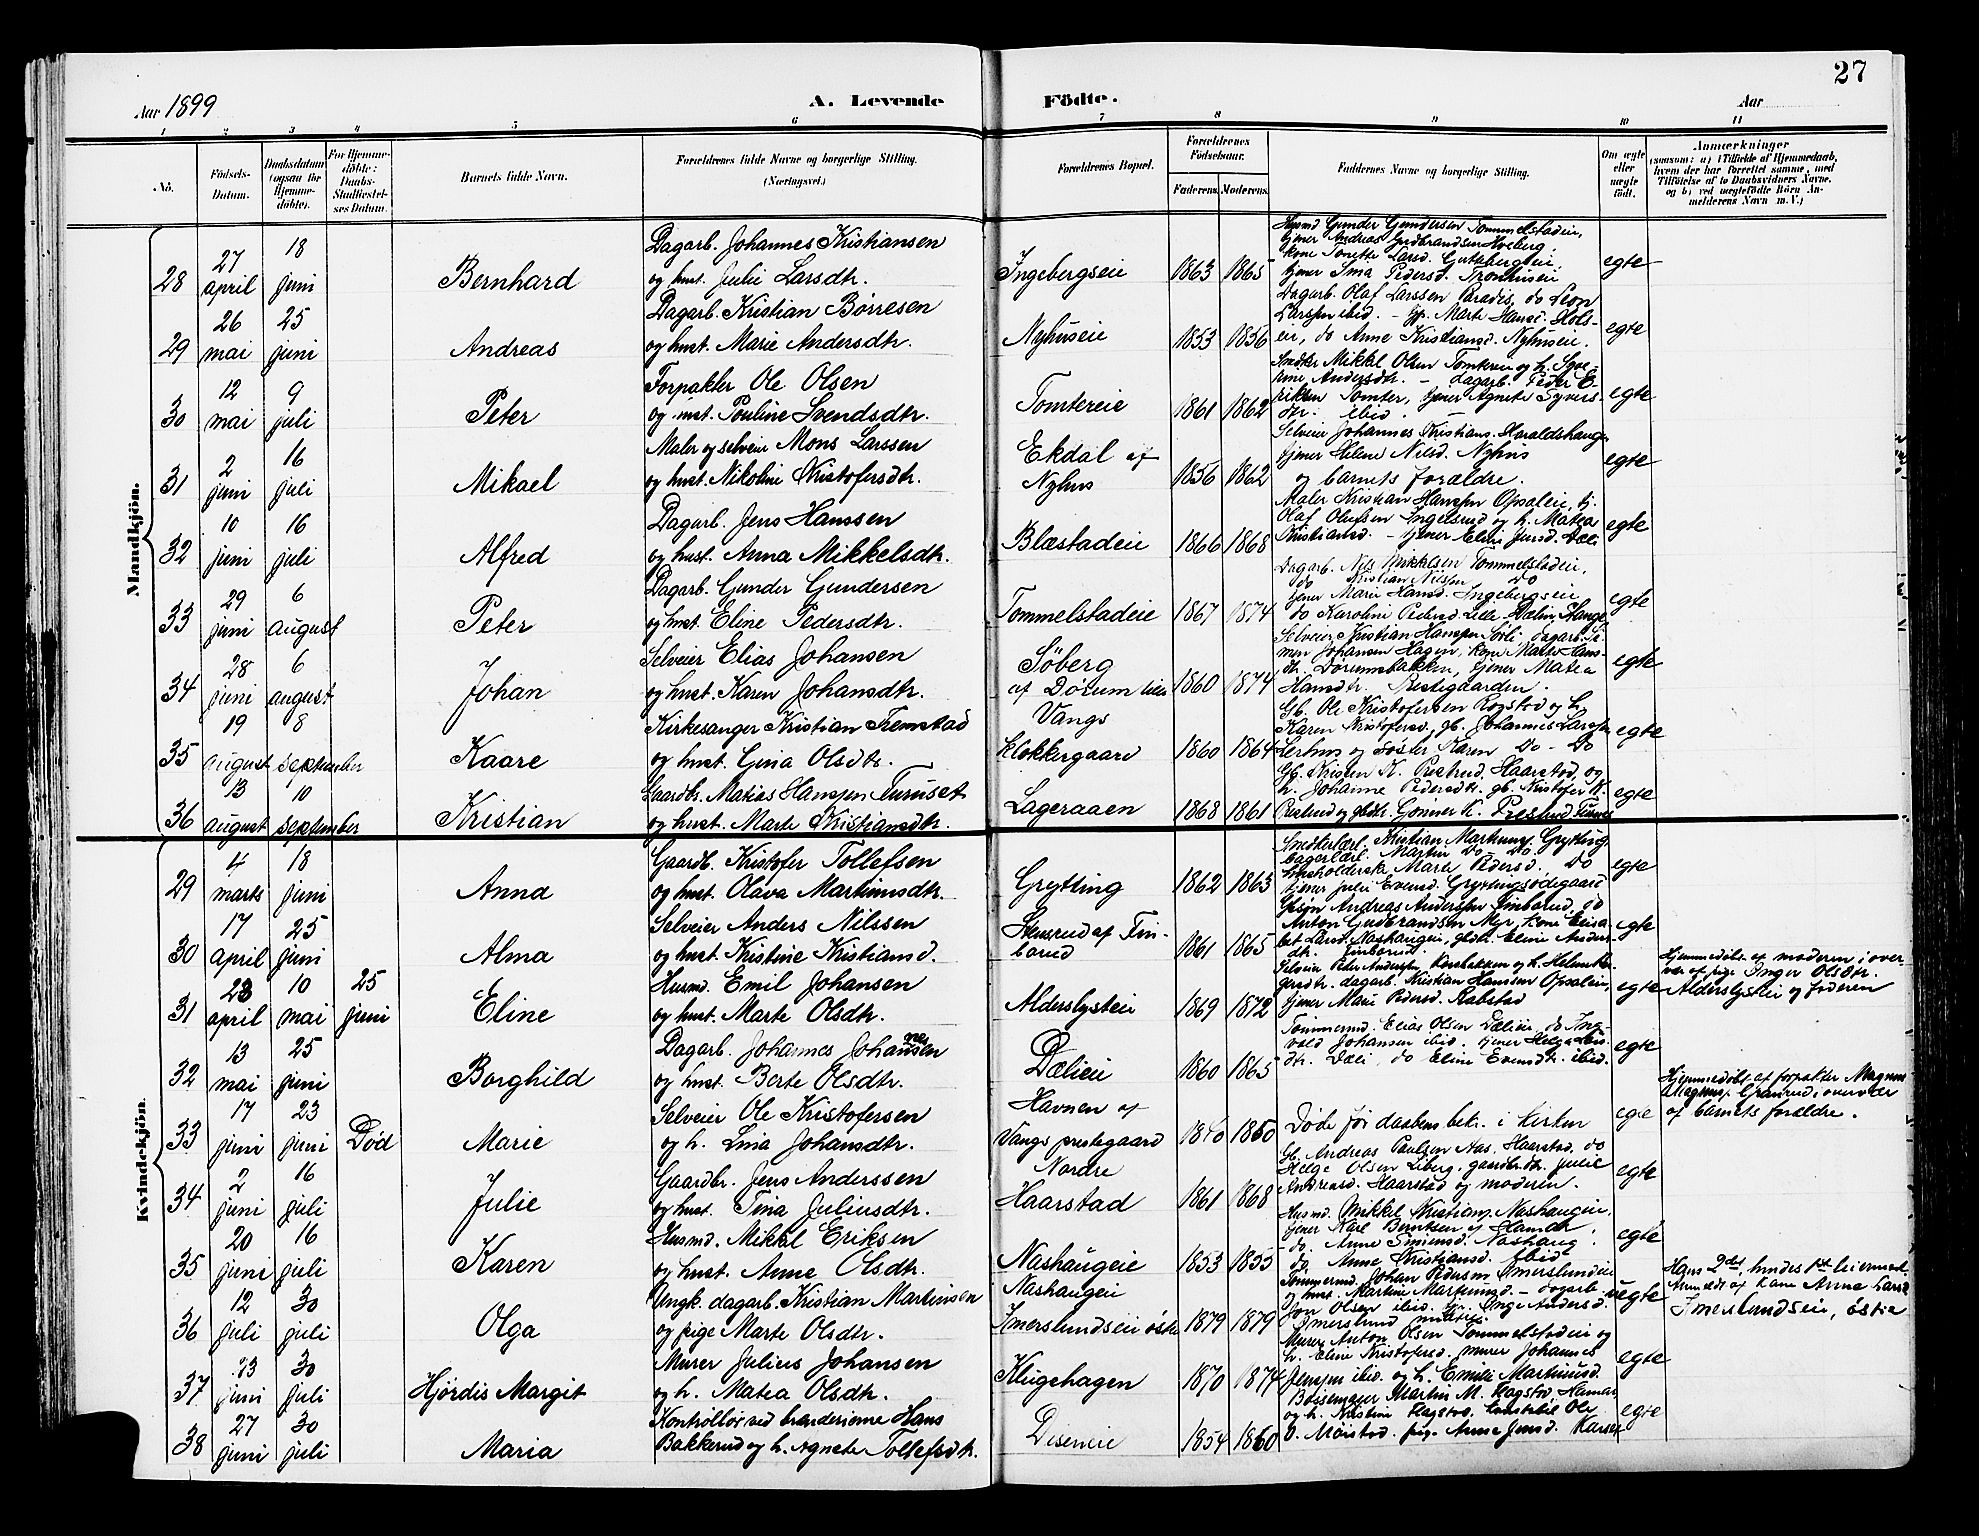 27
Aar 1899
A. Levende
Födte.
Aar
1 2 3 4 5 6 7 8 9 10 11
No.
Födsels-Datum.
Daabsdatum (ogsaa for Hjemme-döbte).
For Hjemme-döbte: Daabs-Stadfæstel-ses Datum.
Barnets fulde Navn.
Forældrenes fulde Navne og borgerlige Stilling. (Næringsvei.)
Forældrenes Bopæl.
Forældrenes Födselsaar.
Faderens. Moderens.
Faddernes Navne og borgerlige Stilling.
Om ægte eller uægte födt.
Anmærkninger
(saasom: a) i Tilfælde af Hjemmedaab, hvem der har forrettet samme, med Tilföielse af to Daabsvidners Navne, og b) ved uægtefödte Börn An-melderens Navn m. V.)
Mandkjön.
28 27 april 18 juni Bernhard Dagarb. Johannes Kristiansen og hust. Julie Larsdtr. Ingebergseie 1863 1865 Husmd Gunder Gundersen Tommelstadeie, tjener Andreas Gudbrandsen Hveberg, kone Tonette Larsd. tjener Ima Pedersd. egte
29 26 mai 25 juni Andreas Dagarb. Kristian Börresen og hust. Marie Andersdtr. Nyhuseie 1853 1856 Dagarb. Olaf Larssen Paradis, do Leon Larssen ibid. – Marte Hansd. Hols-eie, do Anne Kristiansd. Nyhuseie. egte
30 12 mai 9 juli Peter Forpakter Ole Olsen og hust. Pauline Svendsdtr. Tomtereie 1861 1862 Snedker Mikkel Olsen Tomtereie og h. Syve-rine Andersdtr. – Dagarb. Peder E-riksen Tomter, tjener Agnete Syvers-dtr. ibid. egte
31 2 juni 16 juli Mikael Maler og selveier Mons Larssen og hust. Nikoline Kristofersdtr. Ekdal af Nyhus 1856 1862 Selveier Johannes Kristians. Haraldshaugen tjener Helene Nilsd. Nyhus og barnets forældre. egte
32 10 juni 16 juli Alfred Dagarb. Jens Hanssen og hust. Anna Mikkelsdtr. Blæstadeie 1866 1868 Maler Kristian Hanssen Opsaleie, tj. Olaf Olufsen Ingelsrud og h. Matea Kristiansd. – tjener Eline Jensd. Dæli egte
33 29 juni 6 august Peter Dagarb. Gunder Gundersen og hust. Eline Pedersdtr. Tommelstadeie 1867 1874 Dagarb. Nils Mikkelsen Tommelstadeie, do Kristian Nilssen do tjener Marie Hansd. Ingebergseie do Karoline Pedersd. Lille Dælin, Stange egte
34 28 juni 6 august Johan Selveier Elias Johansen og hust. Karen Johansdtr. Söberg af Dörum lille 1860 1874 Selveier Kristian Hanssen Sörli, dagarb. Si-men Johansen Hagen, kone Marte Hans-dtr. Dörumsbakken, tjener Matea Hansdtr. Prestegaarden. egte
35 19 august 8 september Kaare Kirkesanger Kristian Tremstad og hust. Gina Olsdtr. Vangs klokkergaard 1860 1864 Gb. Ole Kristofersen Rogstad og h. Karen Kristofersd., gb. Johannes Larssen Lerhus og söster Karen do – do egte
36 13 august 10 september Kristian Gaardbr. Matias Hanssen Furuset og hust. Marte Kristiansdtr. Lageraaen 1868 1861 Gb. Kristen K. Prestrud, Haarstad, og h. Johanne Pedersdtr. gb. Kristofer K. Prestrud og gbdtr. K. Prestrud egte
Kvindekjön.
29 4 marts 18 juni Anna Gaardb. Kristofer Tollefsen og hust. Olava Martinusdtr. Grytting 1862 1863 Snedkerlærl. Kristian Martinus. Grytting bagerlærl. Martin do – do. husholderske Marte Pedersd. do tjener Julie Evensd. Gryttingsödegaard egte
30 17 april 25 juni Alma Selveier Anders Nilssen og hust. Kristine Kristiansd. af Fin-borud 1861 1865 Andreas Anderssen Finborud, do Anton Gudbrandsen Myr, kone Elisa-bet Larsd. Nashaugeie, gbdtr. Eline Anders-dtr. Finborud. egte
31 23 april 10 mai 25 juni Eline Husmd. Emil Johansen og hust. Marte Olsdtr. Alderslysteie 1869 1872 Selveier Peter Anderssen Korsbakken og h. dagarb. Kristian Hanssen Opsaleie, tjener Marie Pedersd. egte Hjemmedöbt af moderen i over-vær af pige Inger Olsdtr. Alderslysteie og faderen
32 13 mai 25 juni Borghild Dagarb. Johannes Johannesen og hust. Berte Olsdtr. Dælieie 1860 1865 Tömmermd. Elias Olsen Dælieie, do Ing-vald Johansen ibid. tjener Helga Lars-dtr. Dæli, do Eline Evensdtr. ibid. egte
33 17 juni 23 juni Död Marie Selveier Ole Kristofersen og h. Lina Johansdtr. Havnen af Vangs prestegaard 1860 Döde för daabens bekr. i kirken egte Hjemmedöbt af forpakter Magnus Magnus. Granerud, i overvær af barnets forældre.
34 2 juni 16 juli Julie Gaardbr. Jens Anderssen og hust. Tina Juliusdtr. Nordre Haarstad 1861 1868 Gb. Andreas Paulsen Aas, Haarstad, do Helge Olsen Liberg, gaardbrdtr. Julie Andersd. Haarstad og moderen. egte
35 20 juni 16 juli Karen Husmd. Mikkel Eriksen og hust. Anne Olsdtr. Nashaugeie 1853 1855 Husmd. Mikkel Kristians. Nashaugeie, tjener Karl Berntsen af Hamar do. Anne Simensd. Nashaug. do. Anne Kristiansd. ibid. egte
36 12 juli 30 juli Olga Ungk. dagarb. Kristian Martinsen og pige Marte Olsdtr. Nashaugeie Imerslundseie östre 1879 1879 Tömmermd. Johan Pedersen Imerslundeie og hust. Martine Martinusd. – dagarb. Jon Olsen ibid. Inge Andersd. Imerslund uegte Hans 2det, hendes 1ste leiermaal Anmeldt af kone Anna Larsd. Imerslundseie, östre
37 23 juni 30 juli Hjördis Margit Murer Julius Johansen og h. Matea Olsdtr. Klugehagen 1870 1874 Murer Anton Olsen Tommelstadeie og h. Eline Kristofersd. murer Johannes Jenssen ibid. og h. Emilie Martinusd. egte
38 27 juni 30 juli Maria Kontrollör ved brænderierne Hans Bakkerud og h. Agnete Tollefsdtr. Diseneie 1854 1860 Bössemager Martin M. Flagstad, Hamar, og h. Kristine Flagstad. Ole O. Möistad. pige Anne Jensd. egte